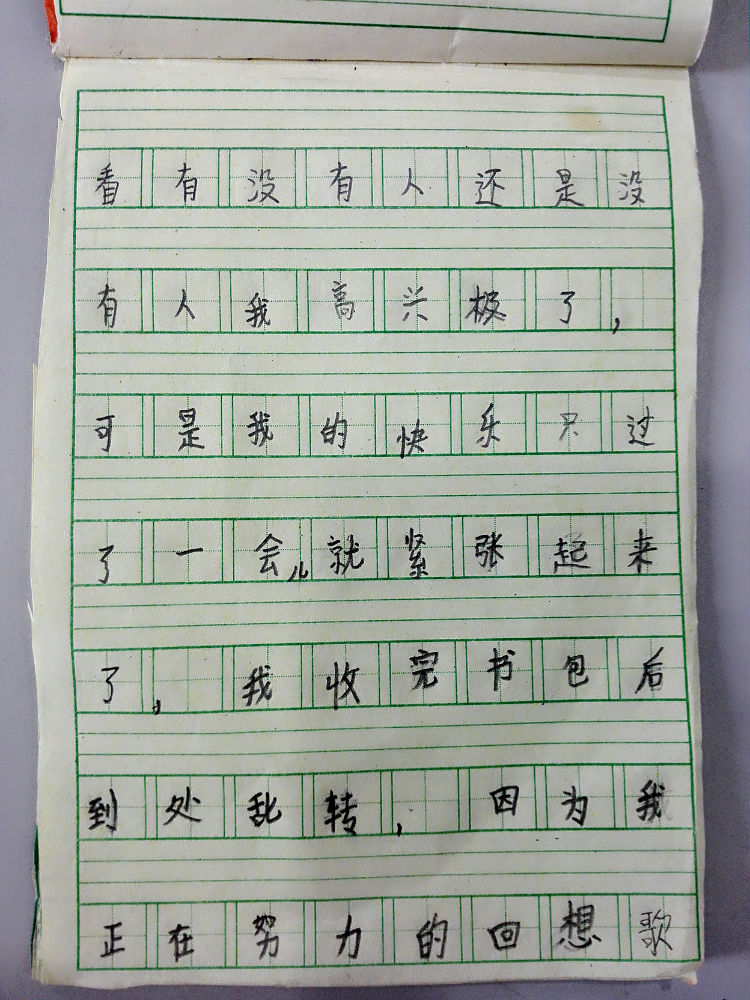 看有没有人还是没
有人我高兴极了，
可是我的快乐只过
了一会儿就紧张起来
了，我收完书包后
到处乱转，因为我
正在努力的回想歌